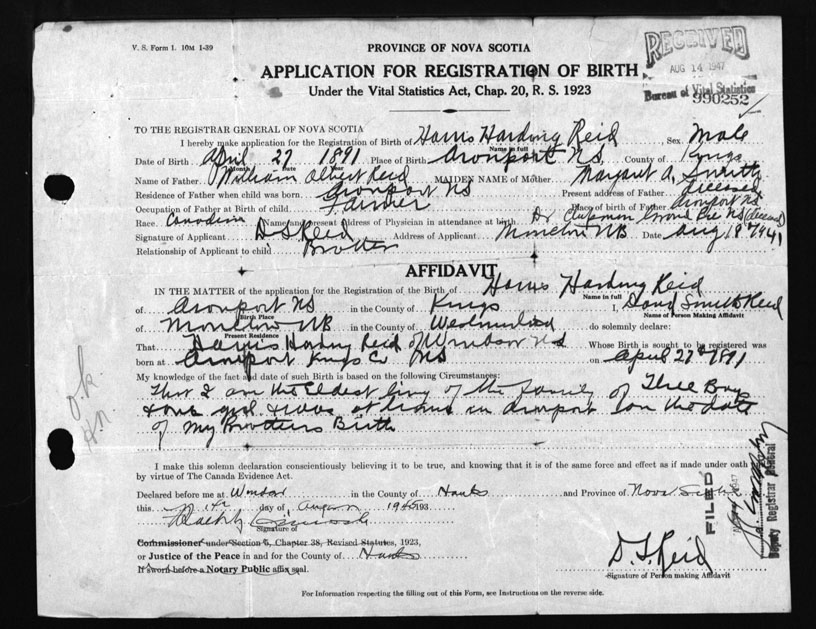 V. S. Form 1. 10M 1-39
PROVINCE OF NOVA SCOTIA
RECEIVED
AUG 14 1947
Bureau of Vital Statistics
990252
APPLICATION FOR REGISTRATION OF BIRTH
Under the Vital Statistics Act, Chap. 20, R. S. 1923
TO THE REGISTRAR GENERAL OF NOVA SCOTIA
I hereby make application for the Registration of Birth of Harris Harding Reid Sex Male
Name in full
Date of Birth April 27 1891 Place of Birth Avonport NS, County of Kings
Month Date Year
Name of Father William Albert Reid MAIDEN NAME of Mother Margaret A. Smith
Residence of Father when child was born Avonport NS Present address of Father deceased
Occupation of Father at Birth of child Farmer Place of birth of Father Avonport NS
Race Canadian Name and present address of Physician in attendance at birth Dr Chipman Grand Pre NS (deceased)
Signature of Applicant D S Reid Address of Applicant Moncton NB Date Aug
Relationship of Applicant to child Brother
AFFIDAVIT
IN THE MATTER of the application for the Registration of the Birth of Harris Harding Reid
Name in full
of Avonport NS in the County of Kings I, David Smith Reid
Birth Place Name of Person Making Affidavit
of Moncton NB in the County of Westmorland do solemnly declare:
Present Residence
That Harris Harding Reid of Windsor NS Whose Birth is sought to be registered was
born at Avonport Kings Co NS on April 27 1891
My knowledge of the fact and date of such Birth is based on the following Circumstances:
That I am the Eldest living of the family of Three Boys
& one girl & was at home in Avonport on the date
of my Brothers Birth
O.K
I make this solemn declaration conscientiously believing it to be true, and knowing that it is of the same force and effect as if made under oath
by virtue of The Canada Evidence Act.
Declared before me at Windsor in the County of Hants and Province of Nova Scotia
this day of August 193
Signature of
Commissioner under Section 5, Chapter 38, Revised Statutes, 1923,
or Justice of the Peace in and for the County of Hants
If sworn before a Notary Public affix seal.
D. S. Reid
Signature of Person making Affidavit
FILED
1947
Deputy Registrar General
For Information respecting the filling out of this Form, see Instructions on the reverse side.